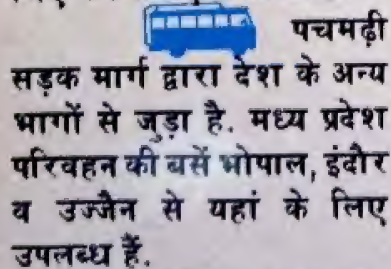 पचमढ़ी
सड़क मार्ग द्वारा देश के अन्य
भागों से जुड़ा है. मध्य प्रदेश
परिवहन की बसें भोपाल, इंदौर
व उज्जैन से यहां के लिए
उपलब्ध हैं.